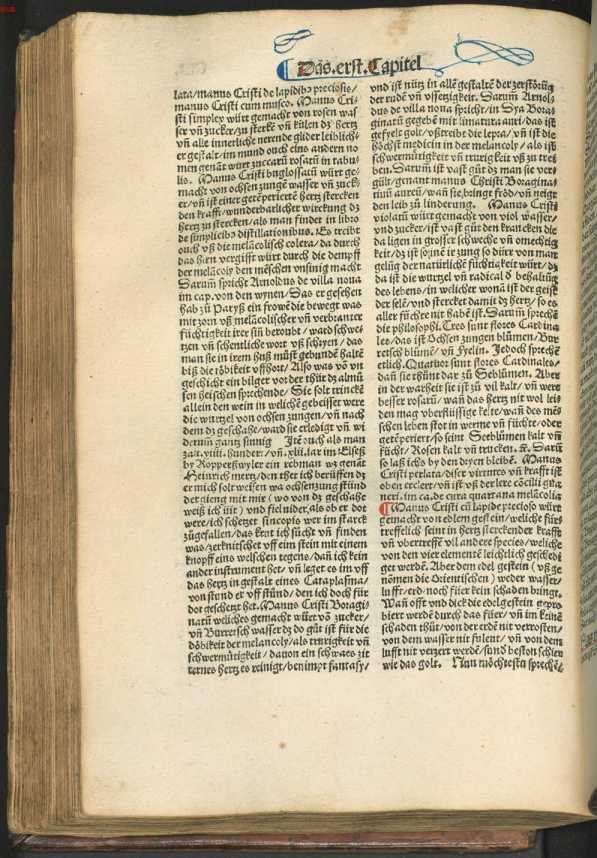 Das.erst.Capitel
lata/manus Cristi de lapidibꝰ preciosis/
manus Cristi cum musco. Manus Cri-
sti simplex würt gemacht von rosen was
ser vñ zucker/zu sterckē vñ külen dz hertz
vñ alle innerliche nerende glider leiblich/
er gestalt/im mund ouch eins andern no
men genāt würt zuccarū rosatū in tabu-
lis. Manus Cristi buglossatū würt ge-
macht von ochsen zungē wasser vñ zuck-
er/vñ ist einer getēperiertē hertz stercken
den krafft/wunderbarlicher wirckung dz
hertz zu stercken/als man finder in libro
de simplicibꝰ distillationibus. Es treibt
ouch vß die melācolisch colera/da durch
das hirn vergifft würt durch die dempff
der melācoly den mēschen vnsinig macht
Darum spricht Arnoldus de villa noua
im cap. von den wynen/Das er gesehen
hab zů Paryß ein frowē die bewegt was
mit zorn vß melācolischer vñ verbranter
fůchtigkeit irer siñ beroubt/ward schwe-
tzen vñ schentliche wort vß schryen/das
man sie in irem huß můst gebundē haltē
biß die tobikeit vffhort/Also was vō vn
geschicht ein bilger vor der thür dz almů
sen heischen sprechende/Sie solt trinckē
allein den wein in welichē gebeisset were
die wurtzel von ochsen zungen/vñ nach
dem dz geschahe/ward sie erledigt vñ wi
derum gantz sinnig Itē ouch als man
zalt.xiiii.hundert/vñ.xlii.iar im Elseß
by Ropperßwyler ein rebman wz genāt
Heinrich mertz/den thet ich berüffen dz
er mich solt weisen wa ochsenzung stünd
der gieng mit mir (wo von dz geschahe
weiß ich nit) vnd fiel nider/als ob er dot
were/ich schetzet sincopis wer im starck
zůgefallen/das krut ich sůcht vñ finden
was/zerknitschet vff eim stein mit einem
knopff eins welschen tegens/dañ ich kein
ander instrument het/vñ leget es im vff
das hertz in gestalt eines Cataplasma/
von stund er vff stůnd/den ich doch für
dot geschetzt het. Manus Cristi Boragi-
natū weliches gemacht würt vō zucker/
vñ Burretsch wasser dz do gůt ist für die
dobikeit der melancoly/als trurigkeit vñ
schwermůtigkeit/dauon ein schwaes zit
ternes hertz es reinigt/benimpt fantasy/
vnd ist nütz in allē gestaltē der zerstörūg
der rudē vñ vssetzigkeit. Darum Arnol-
dus de villa noua spricht/in Dya Boras
ginatū gegebē mit limatura auri/das ist
gefyelt golt/vßtreibt die lepra/vñ ist die
höchst medicin in der melancoly/als ist
schwermůtikeit vñ trurigkeit vß zu trei
ben. Darum ist vast gůt dz man sie ver-
gült/genant manus Christi Boragina-
tium aureū/wañ sie bringt fröd/vñ neigt
den leib zů linderung. Manus Cristi
violatū würt gemacht von viol wasser/
vnd zucker/ist vast gůt den krancken die
da ligen in grosser schweche vñ omechtig
keit/dz ist so iñe ir zung so dürr von man
gelūg der natürlichē füchtigkeit würt/dz
da ist die wurtzel vñ radical ð behaltūg
des lebens/in welicher wonā ist der geist
der selē/vnd stercket damit dz hertz/so es
aller füchte nit habē ist. Darum sprechē
die philosophi. Tres sunt flores Cardina
les/das ist Ochsen zungen blůmen/Bur
retsch blůmē/vñ Fyelin. Jedoch sprechē
etlich. Quatuor sunt flores Cardinales/
dañ sie thůnt dar zů Seblůmen. Aber
in der warheit sie ist zů vil kalt/vñ wert
besser rosarū/wañ das hertz nit wol lei-
den mag vberflüssige kelte/wañ des mē-
schen leben stot in werme vñ füchte/oder
getēperiert/so seint Seeblůmen kalt vñ
fücht/Rosen kalt vñ trucken. ꝛc. Darū
so laß ichs by den dryen bleibē. Manus
Cristi perlata/diser virtutes vñ krafft ist
oben erclert/vñ ist vß der lere cōcilii gua
neri. im ca. de cura quartana melācolia
Manus Cristi cū lapide precioso würt
gemacht von edlem gestein/weliche für-
treffelich seint in hertz sterckender krafft
vñ vbertreffē vil andere species/weliche
von den vier elementē leichtlich geschedi
get werdē. Aber dem edel gestein (vß ge
nōmen die Orientischen) weder wasser/
lufft/erd noch füer kein schaden bringt.
Wañ offt vnd dick die edel gestein gepro
biert werdē durch das füer/vñ im keinē
schaden thůt/von der erdē nit verrosten/
von dem wasser nit fulent/vñ von dem
lufft nit verzert werdē/sund beston schien
wie das golt. Nun möchtestu sprechē/